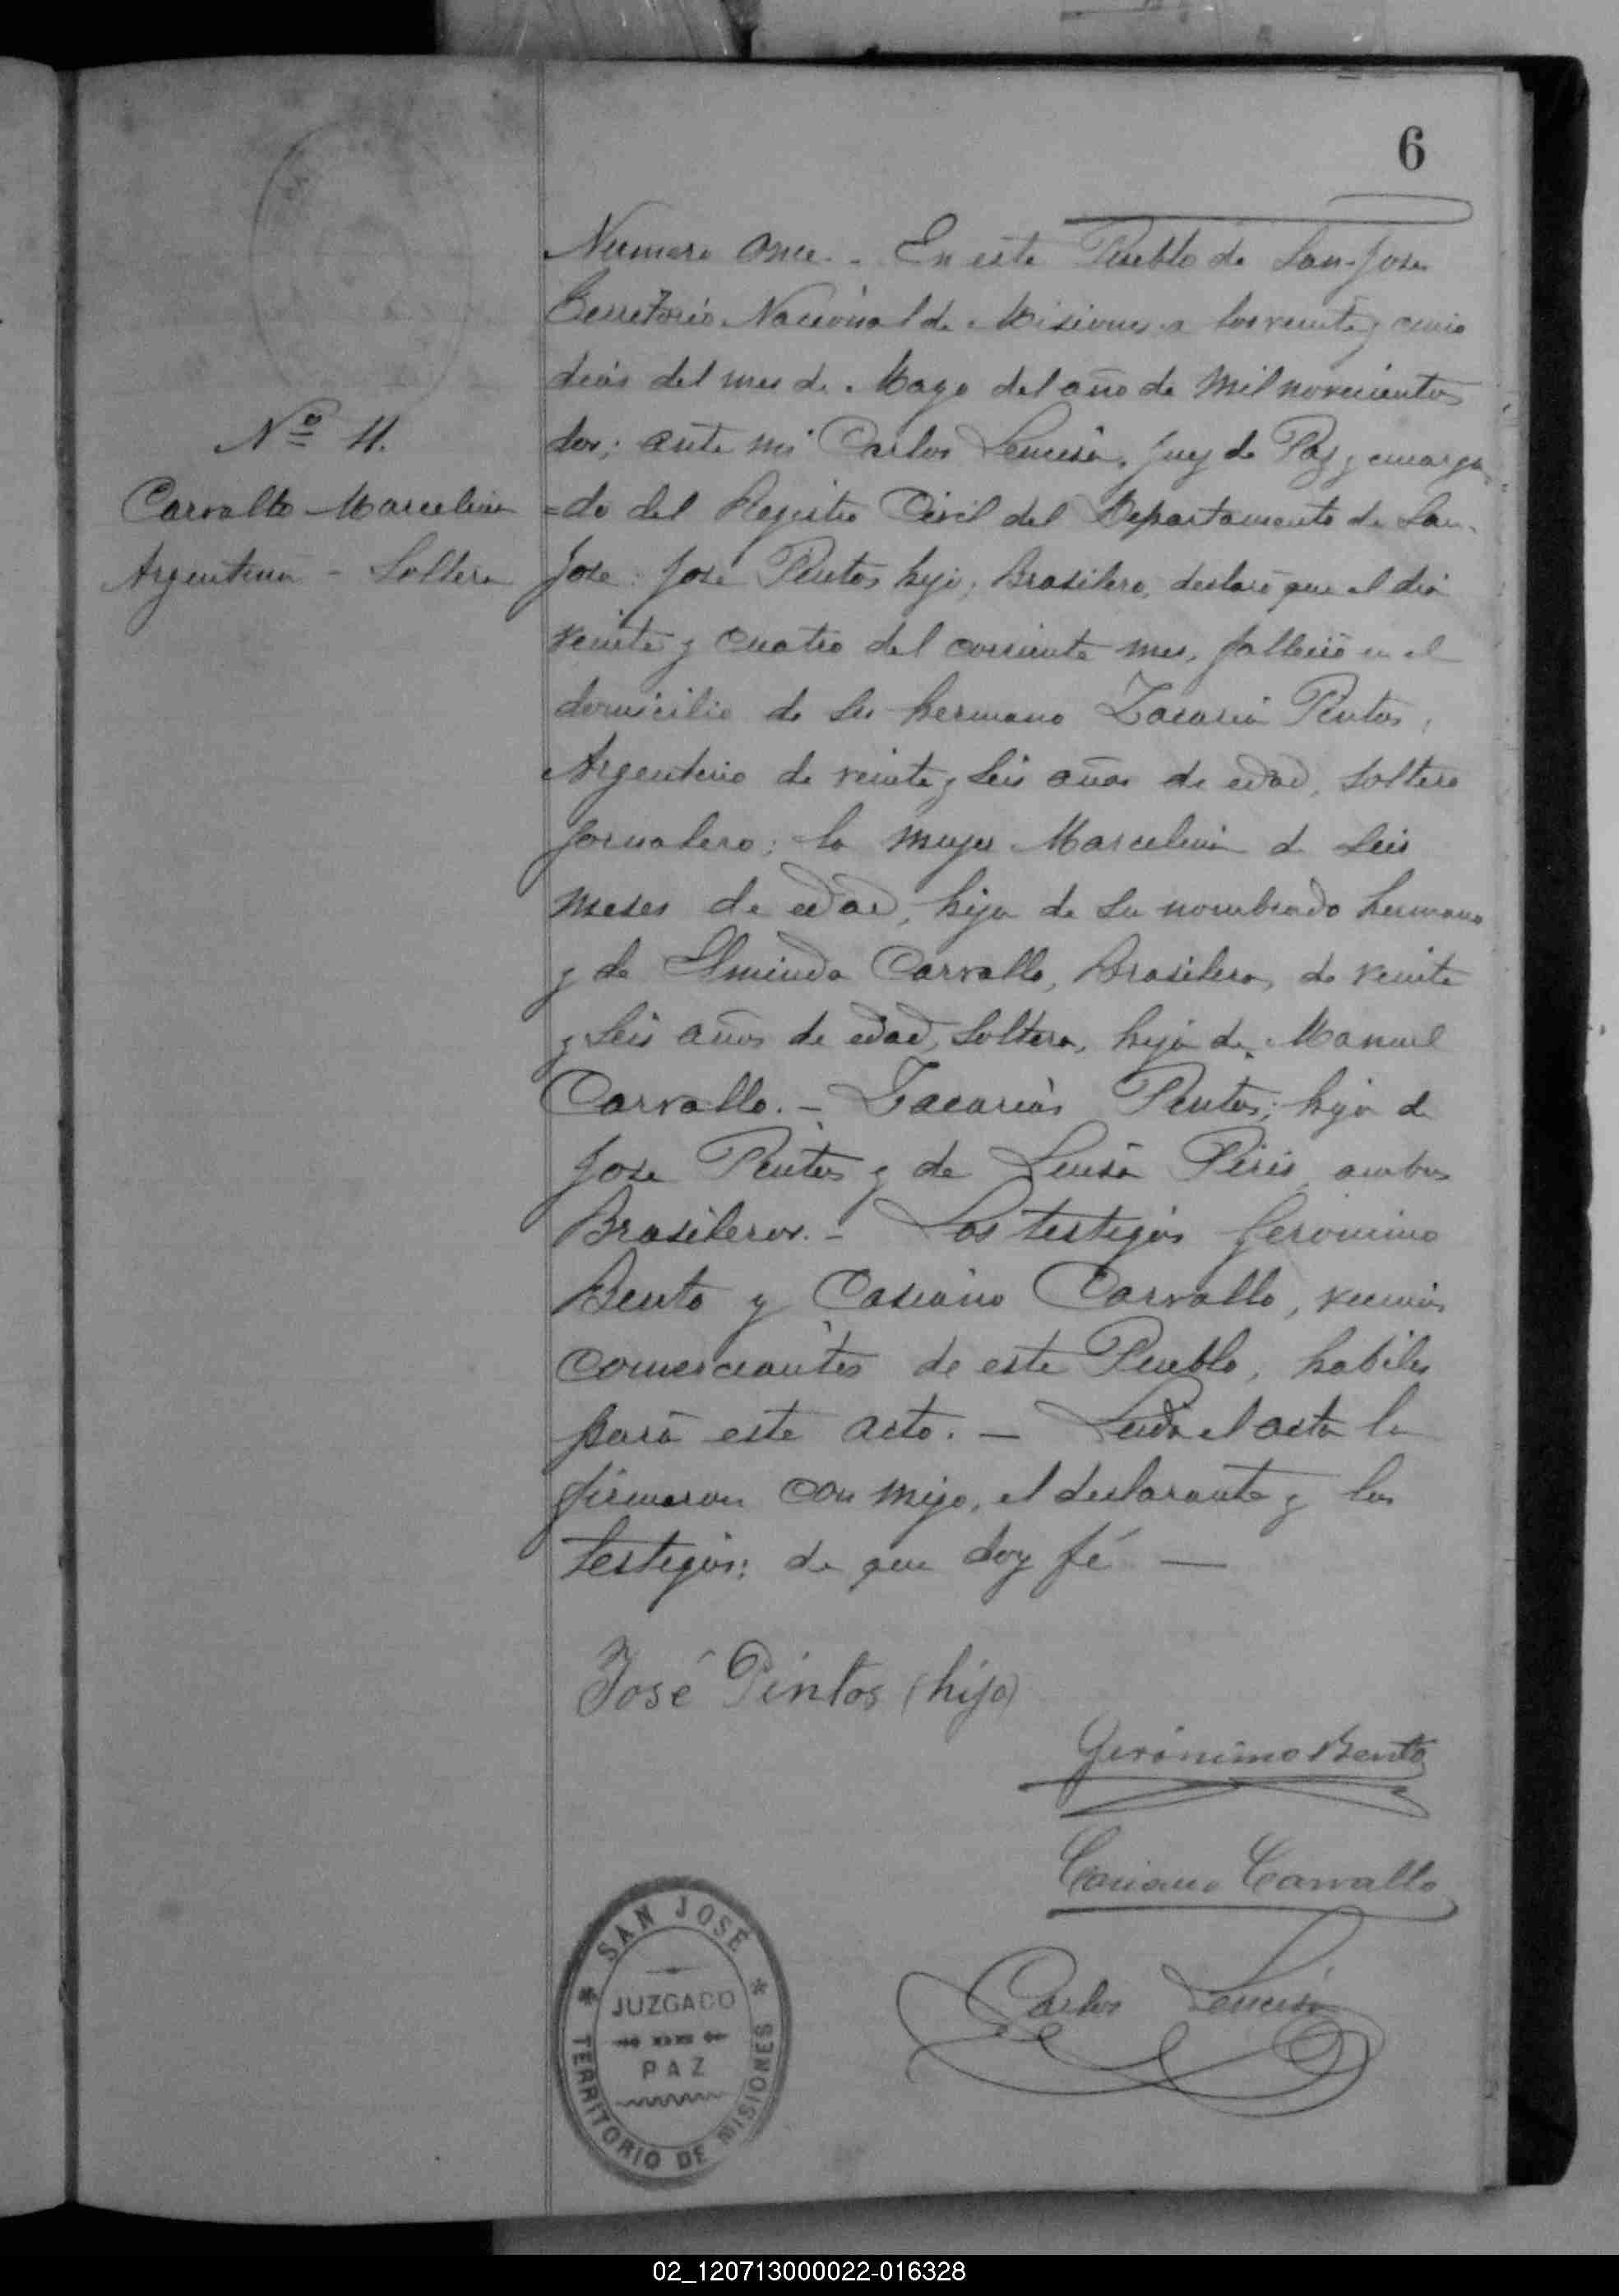 6
Numero Once. - En este Pueblo de San José
Territorio Nacional de Misiones a los veinte y cinco
dias del mes de Mayo del año de Mil novecientos
dos; ante mi Carlos Juez de Paz y encarga
=do del Registro Civil del Departamento de San
José: José Pintos hijo, Brasilero, declaró que el dia
veinte y cuatro del corriente mes, falleció en el
domicilio de su hermano Zacaria Pintos,
Argentino de veinte y seis años de edad, soltero
jornalero; la mujer Marcelina de seis
meses de edad, hija de su nombrado hermano
y de Carvallo, Brasilera, de veinte
y seis años de edad, soltera, hija de Manuel
Carvallo. - Zacarias Pintos; hijo de
José Pintos y de Luisa Piris, ambos
Brasileros. - Los testigos Geronimo
Bento y Casiano Carvallo, vecinos
comerciantes de este Pueblo, habiles
para este acto. - Leida el acta la
firmaron con migo, el declarante y los
testigos; de que doy fé —
Nº 11.
Carvallo Marcelina
Argentina - Soltera
José Pintos (hijo)
Gerónimo Bento
Casiano Carvallo
Carlos
SAN JOSÉ
JUZGADO
PAZ
TERRITORIO DE MISIONES
02_120713000022-016328